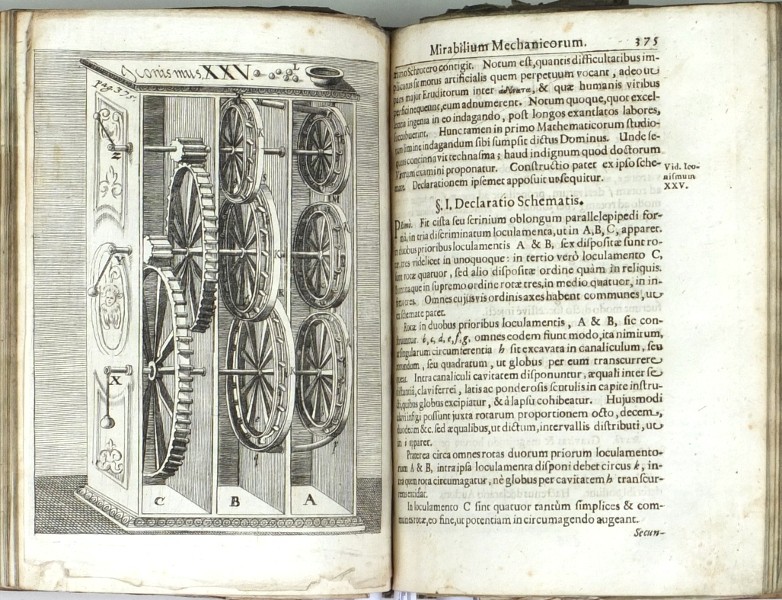 Iconismus XXV.
L
pag. 375.
Z
X
M
K
C
B
A
Mirabilium Mechanicorum. 375
contigit. Notum est, quantis difficultatibus im-
sit motus artificialis quem perpetuum vocant, adeo ut
major Eruditorum inter & quæ humanis viribus
nequeunt, eum adnumerent. Notum quoque, quot excel-
ingenia in eo indagando, post longos exantlatos labores,
Hunc tamen in primo Mathematicorum studio-
indagandum sibi sumpsit dictus Dominus. Unde se-
concinnavit technasma; haud indignum quod doctorum
examini proponatur. Constructio patet ex ipso sche-
Declarationem ipsemet apposuit ut sequitur.
Vid. Ico-
nismum
XXV.
§. I. Declaratio Schematis.
Fit cista seu scrinium oblongum parallelepipedi for-
in tria discriminatum loculamenta, ut in A, B, C, apparet.
duobus prioribus loculamentis A & B, sex dispositæ sunt ro-
videlicet in unoquoque: in tertio verò loculamento C,
rotæ quatuor, sed alio dispositæ ordine quàm in reliquis.
in supremo ordine rotæ tres, in medio quatuor, in in-
Omnes cujusvis ordinis axes habent communes, ut
patet.
Rotæ in duobus prioribus loculamentis, A & B, sic con-
c, d, e, f, g, omnes eodem fiunt modo, ita nimirum,
circumferentia h sit excavata in canaliculum, seu
seu quadratum, ut globus per eum transcurrere
Intra canaliculi cavitatem disponuntur, æquali inter se
clavi ferrei, latis ac ponderosis scutulis in capite instru-
quibus globus excipiatur, & à lapsu cohibeatur. Hujusmodi
possunt juxta rotarum proportionem octo, decem,
&c. sed æqualibus, ut dictum, intervallis distributi, ut
in i apparet.
Præterea circa omnes rotas duorum priorum loculamento-
rum A & B, intra ipsa loculamenta disponi debet circus k, in-
tra quem rota circumagatur, nè globus per cavitatem h transcur-
In loculamento C sint quatuor tantùm simplices & com-
rotæ, eo fine, ut potentiam in circumagendo augeant.
Secun-